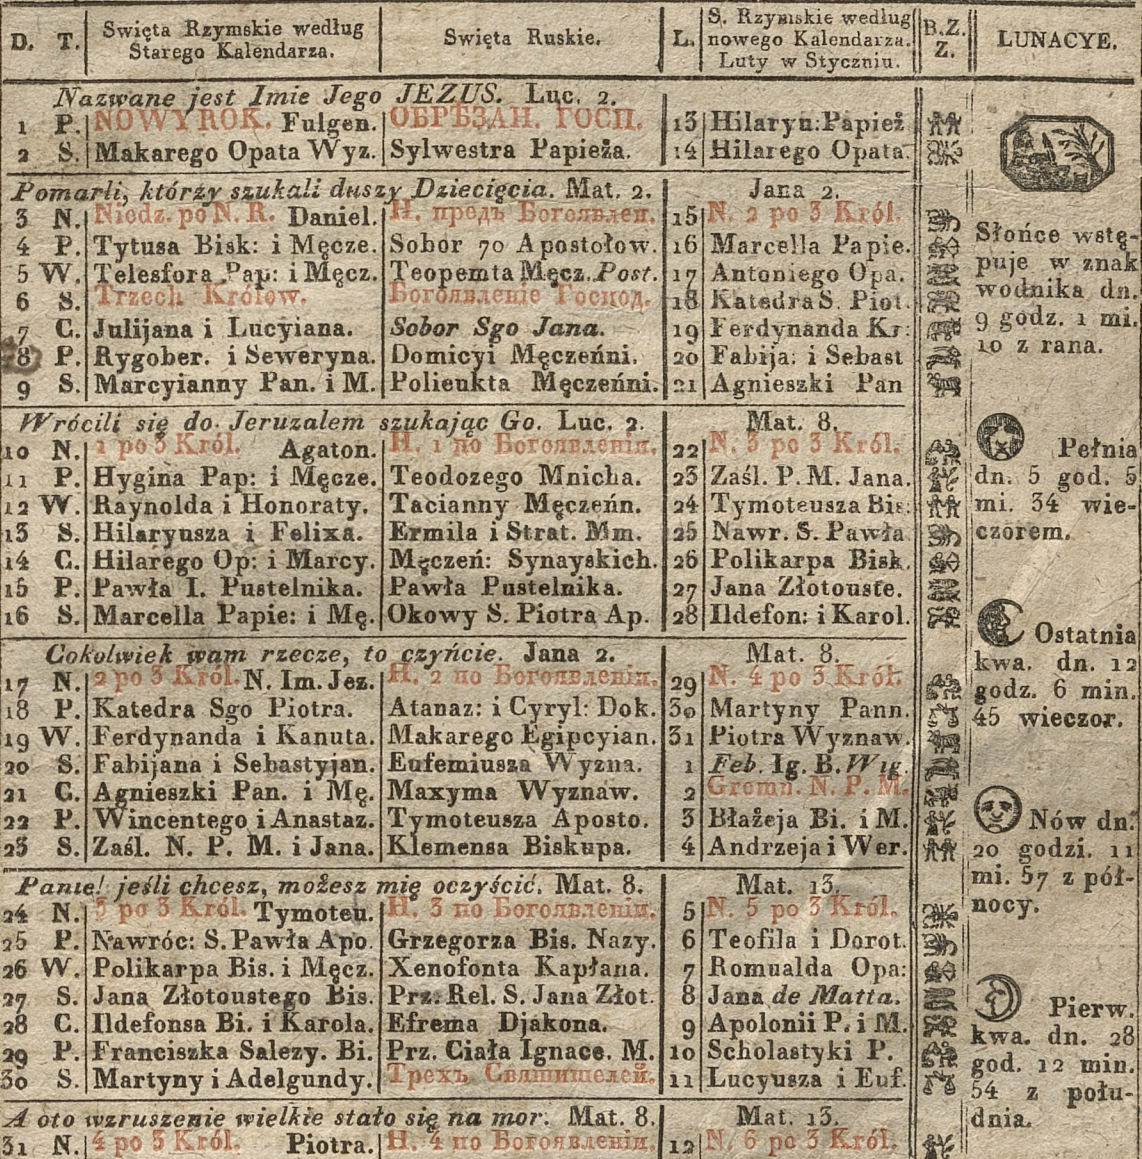 D. T. Swięta Rzymskie według Starego Kalendarza. Swięta Ruskie. L. S. Rzymskie według nowego Kalendarza. Luty w Styczniu. B.Z. Z. LUNACYE.
Nazwane jest Imie Jego JEZUS. Luc. 2.
1 P. NOWY ROK. Fulgen. ОБРѢЗАН. ГОСП. 13 Hilaryu: Papież
2 S. Makarego Opata Wyz. Sylwestra Papieża. 14 Hilarego Opata.
Pomarli, którzy szukali duszy Dziecięcia. Mat. 2. Jana 2.
3 N. Niedz. po N. R. Daniel. Н. предъ Богоявлен. 15 N. 2 po 3 Król.
4 P. Tytusa Bisk: i Męcze. Sobor 70 Apostołow. 16 Marcella Papie.
5 W. Telesfora Pap: i Męcz. Teopemta Męcz. Post. 17 Antoniego Opa.
6 S. Trzech Królow. Богоявленіе Господ. 18 Katedra S. Piot.
7 C. Julijana i Lucyiana. Sobor Sgo Jana. 19 Ferdynanda Kr:
8 P. Rygober. i Seweryna. Domicyi Męczeńni. 20 Fabija: i Sebast
9 S. Marcyianny Pan. i M. Polieukta Męczeńni. 21 Agnieszki Pan
Wrócili się do Jeruzalem szukając Go. Luc. 2. Mat. 8.
10 N. 1 po 3 Król. Agaton. Н. 1 по Богоявленіи. 22 N. 3 po 3 Król.
11 P. Hygina Pap: i Męcze. Teodozego Mnicha. 23 Zaśl. P. M. Jana.
12 W. Raynolda i Honoraty. Tacianny Męczeńn. 24 Tymoteusza Bis:
13 S. Hilaryusza i Felixa. Ermila i Strat. Mm. 25 Nawr. S. Pawła
14 C. Hilarego Op: i Marcy. Męczeń: Synayskich. 26 Polikarpa Bisk.
15 P. Pawła I. Pustelnika. Pawła Pustelnika. 27 Jana Złotouste.
16 S. Marcella Papie: i Mę. Okowy S. Piotra Ap. 28 Ildefon: i Karol.
Cokolwiek wam rzecze, to czyńcie. Jana 2. Mat. 8.
17 N. 2 po 3 Król. N. Im. Jez. Н. 2 по Богоявленіи. 29 N. 4 po 3 Król.
18 P. Katedra Sgo Piotra. Atanaz: i Cyryl: Dok. 30 Martyny Pann.
19 W. Ferdynanda i Kanuta. Makarego Egipcyian. 31 Piotra Wyznaw.
20 S. Fabijana i Sebastyjan. Eufemiusza Wyzna. 1 Feb. Ig. B. Wig.
21 C. Agnieszki Pan. i Mę. Maxyma Wyznaw. 2 Gromn. N. P. M.
22 P. Wincentego i Anastaz. Tymoteusza Aposto. 3 Błażeja Bi. i M.
23 S. Zaśl. N. P. M. i Jana. Klemensa Biskupa. 4 Andrzeja i Wer.
Panie! jeśli chcesz, możesz mię oczyścić. Mat. 8. Mat. 13.
24 N. 3 po 3 Król. Tymoteu. Н. 3 по Богоявленіи. 5 N. 5 po 3 Król.
25 P. Nawróc: S. Pawła Apo. Grzegorza Bis. Nazy. 6 Teofila i Dorot.
26 W. Polikarpa Bis. i Męcz. Xenofonta Kapłana. 7 Romualda Opa:
27 S. Jana Złotoustego Bis. Prz: Rel. S. Jana Złot. 8 Jana de Matta.
28 C. Ildefonsa Bi. i Karola. Efrema Djakona. 9 Apolonii P. i M.
29 P. Franciszka Salezy. Bi. Prz. Ciała Ignace. M. 10 Scholastyki P.
30 S. Martyny i Adelgundy. Трехъ Святителей. 11 Lucyusza i Euf.
A oto wzruszenie wielkie stało się na mor: Mat. 8. Mat. 13.
31 N. 4 po 3 Król. Piotra. Н. 4 по Богоявленіи. 12 N. 6 po 3 Król.
Słońce wstę-
puje w znak
wodnika dn.
9 godz. 1 mi.
10 z rana.
Pełnia
dn. 5 god. 5
mi. 34 wie-
czorem.
Ostatnia
kwa. dn. 12
godz. 6 min.
45 wieczor.
Nów dn.
20 godzi. 11
mi. 57 z pół-
nocy.
Pierw.
kwa. dn. 28
god. 12 min.
54 z połu-
dnia.